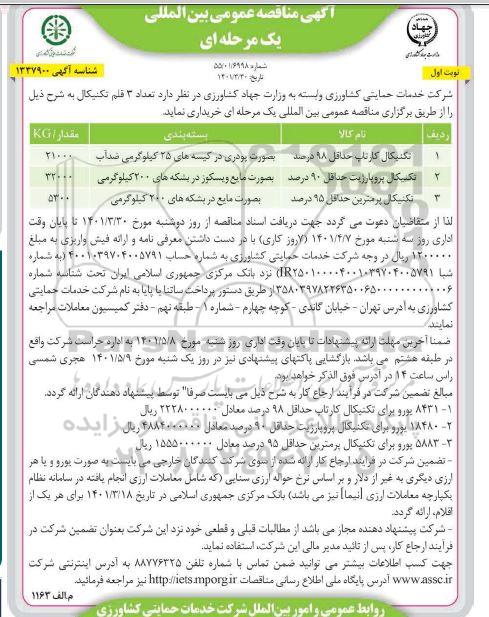 آگهی مناقصه عمومی بین المللی
یک مرحله ای
شناسه آگهی ۱۳۳۷۹۰۰
نوبت اول
شماره: ۵۵/۰۱/۶۹۹۸
تاریخ: ۱۴۰۱/۳/۳۰
شرکت خدمات حمایتی کشاورزی وابسته به وزارت جهاد کشاورزی در نظر دارد تعداد ۳ قلم تکنیکال به شرح ذیل
را از طریق برگزاری مناقصه عمومی بین المللی یک مرحله ای خریداری نماید.
ردیف نام کالا بسته‌بندی مقدار/KG
۱ تکنیکال کارتاپ حداقل ۹۸ درصد بصورت پودری در کیسه های ۲۵ کیلوگرمی ضدآب ۲۱۰۰۰
۲ تکنیکال پروپارژیت حداقل ۹۰ درصد بصورت مایع ویسکوز در بشکه های ۲۰۰کیلوگرمی ۳۲۰۰۰
۳ تکنیکال پرمترین حداقل ۹۵ درصد بصورت مایع در بشکه های ۲۰۰ کیلوگرمی ۵۳۰۰
لذا از متقاضیان دعوت می گردد جهت دریافت اسناد مناقصه از روز دوشنبه مورخ ۱۴۰۱/۳/۳۰ تا پایان وقت
اداری روز سه شنبه مورخ ۱۴۰۱/۴/۷ (۷روز کاری) با در دست داشتن معرفی نامه و ارائه فیش واریزی به مبلغ
۱۲۰۰۰۰۰ ریال در وجه شرکت خدمات حمایتی کشاورزی به شماره حساب ۴۰۰۱۰۳۹۷۰۴۰۰۵۷۹۱ (به شماره
شبا IR۲۵۰۱۰۰۰۰۴۰۰۱۰۳۹۷۰۴۰۰۵۷۹۱) نزد بانک مرکزی جمهوری اسلامی ایران تحت شناسه شماره
از طریق دستور پرداخت ساتنا یا پایا به نام شرکت خدمات حمایتی
کشاورزی به آدرس تهران - خیابان گاندی - کوچه چهارم - شماره ۱ - طبقه نهم - دفتر کمیسیون معاملات مراجعه
نمایند.
ضمنا آخرین مهلت ارائه پیشنهادات تا پایان وقت اداری روز شنبه مورخ ۱۴۰۱/۵/۸ به اداره حراست شرکت واقع
در طبقه هشتم می باشد. بازگشایی پاکتهای پیشنهادی نیز در روز یک شنبه مورخ ۱۴۰۱/۵/۹ هجری شمسی
راس ساعت ۱۴ در آدرس فوق الذکر خواهد بود.
مبالغ تضمین شرکت در فرآیند ارجاع کار به شرح ذیل می بایست صرفا" توسط پیشنهاد دهندگان ارائه گردد.
۱- ۸۴۳۱ یورو برای تکنیکال کارتاپ حداقل ۹۸ درصد معادل ۲۲۲۸۰۰۰۰۰۰ ریال
۲- ۱۸۴۸۰ یورو برای تکنیکال پروپارژیت حداقل ۹۰ درصد معادل ۴۸۸۴۰۰۰۰۰۰ ریال
۳- ۵۸۸۳ یورو برای تکنیکال پرمترین حداقل ۹۵ درصد معادل ۱۵۵۵۰۰۰۰۰۰ ریال
- تضمین شرکت در فرآیند ارجاع کار ارائه شده از سوی شرکت کنندگان خارجی می بایست به صورت یورو و یا هر
ارزی دیگری به غیر از دلار و بر اساس نرخ حواله ارزی سنایی (که شامل معاملات ارزی انجام یافته در سامانه نظام
یکپارچه معاملات ارزی [نیما] نیز می باشد) بانک مرکزی جمهوری اسلامی در تاریخ ۱۴۰۱/۳/۱۸ برای هر یک از
اقلام، ارائه گردد.
- شرکت پیشنهاد دهنده مجاز می باشد از مطالبات قبلی و قطعی خود نزد این شرکت بعنوان تضمین شرکت در
فرآیند ارجاع کار، پس از تائید مدیر مالی این شرکت، استفاده نماید.
جهت کسب اطلاعات بیشتر می توانید ضمن تماس با شماره تلفن ۸۸۷۷۶۳۲۵ به آدرس اینترنتی شرکت
www.assc.ir آدرس پایگاه ملی اطلاع رسانی مناقصات http://iets.mporg.ir نیز مراجعه فرمائید.
م.الف ۱۱۶۳
روابط عمومی و امور بین الملل شرکت خدمات حمایتی کشاورزی